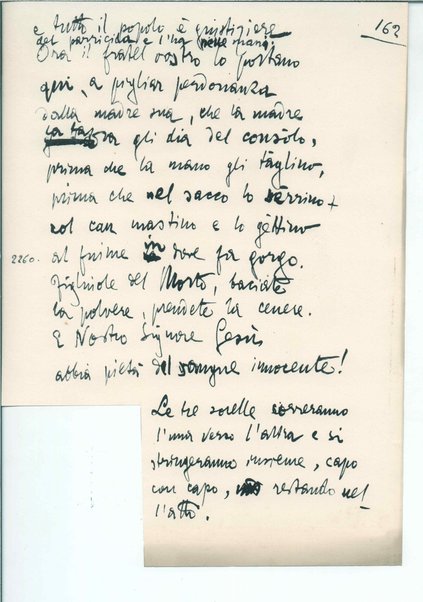 162
e tutto il popolo è giustiziere
del parricida e l'ha nelle mani.
Ora il fratel vostro lo portano
qui, a pigliar perdonanza
dalla madre sua, che la madre
la tazza gli dia del consòlo,
prima che la mano gli tàglino,
prima che nel sacco lo sèrrino
col can mastino e lo gèttino
2260. al fiume in dove fa gorgo.
Figliuole del Morto, baciate
la polvere, prendete la cenere.
E Nostro Signore Gesù
abbia pietà del sangue innocente!
Le tre sorelle correranno
l'una verso l'altra e si
stringeranno insieme, capo
con capo, restando nel
l'atto.